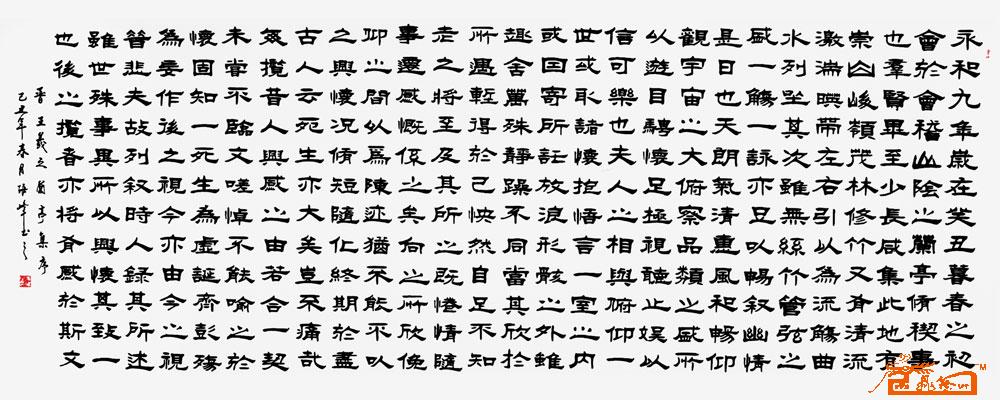 永和九年歲在癸丑暮春之初
會於會稽山陰之蘭亭脩禊事
也羣賢畢至少長咸集此地有
崇山峻領茂林修竹又有清流
激湍暎帶左右引以為流觴曲
水列坐其次雖無絲竹管弦之
盛一觴一詠亦足以暢叙幽情
是日也天朗氣清惠風和暢仰
觀宇宙之大俯察品類之盛所
以遊目騁懷足極視聽之娛以
信可樂也夫人之相與俯仰一
世或取諸懷抱悟言一室之內
或因寄所託放浪形骸之外雖
趣舍萬殊靜躁不同當其欣於
所遇蹔得於己怏然自足不知
老之將至及其所之既惓情隨
事遷感慨係之矣向之所欣俛
仰之間以為陳迹猶不能不以
之興懷況脩短隨化終期於盡
古人云死生亦大矣豈不痛哉
每攬昔人興感之由若合一契
未嘗不臨文嗟悼不能喻之於
懷固知一死生為虛誕齊彭殤
為妄作後之視今亦由今之視
昔悲夫故列叙時人錄其所述
雖世殊事異所以興懷其致一
也後之攬者亦將有感於斯文
晉王羲之蘭亭集序
己丑年春月